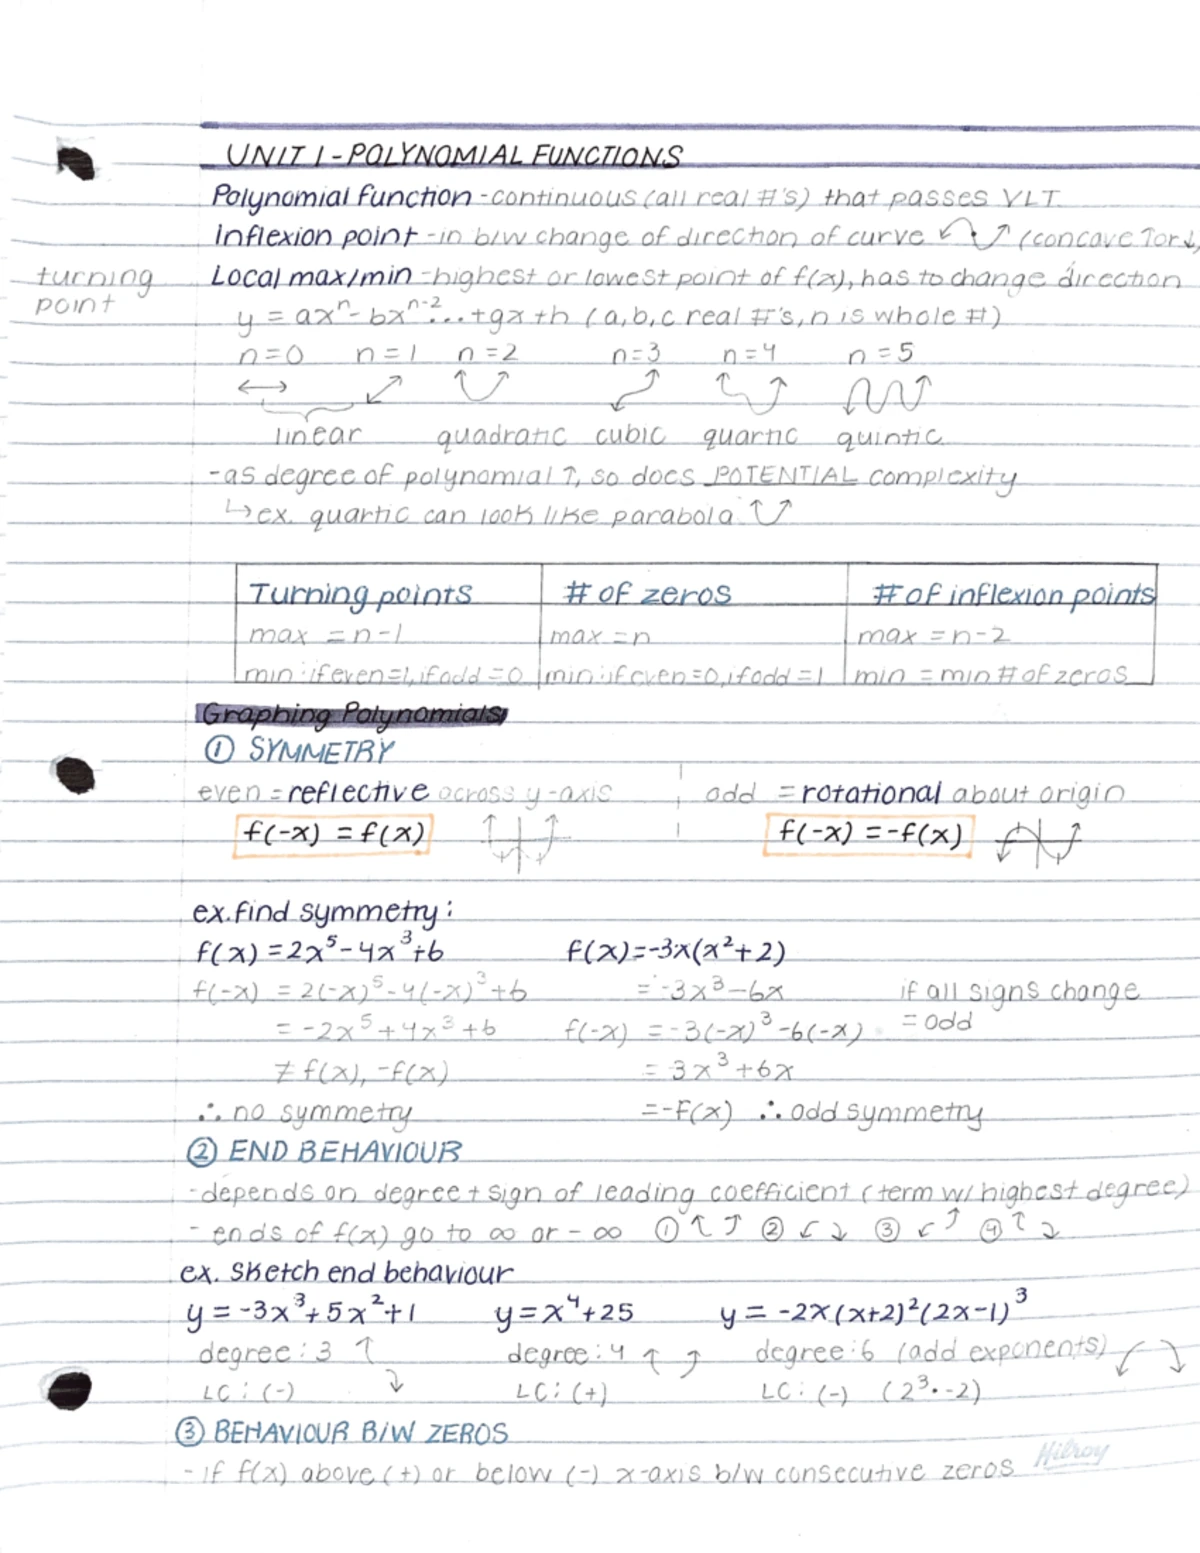 UNIT 1 - POLYNOMIAL FUNCTIONS
Polynomial function - continuous (all real #'s) that passes VLT
Inflexion point - in b/w change of direction of curve (concave ↑or↓,
turning point
Local max/min - highest or lowest point of f(x), has to change direction
y = axⁿ - bxⁿ⁻²...+gx+h (a,b,c real #'s, n is whole #)
n=0 n=1 n=2 n=3 n=4 n=5
linear quadratic cubic quartic quintic
- as degree of polynomial ↑, so does POTENTIAL complexity
↳ ex. quartic can look like parabola
Turning points # of zeros # of inflexion points
max = n-1 max = n max = n-2
min: if even=1, if odd=0 min: if even=0, if odd=1 min = min # of zeros
Graphing Polynomials
① SYMMETRY
even = reflective across y-axis odd = rotational about origin
f(-x) = f(x) f(-x) = -f(x)
ex. find symmetry:
f(x) = 2x⁵ - 4x³ + 6 f(x) = -3x(x²+2)
f(-x) = 2(-x)⁵ - 4(-x)³ + 6 = -3x³ - 6x if all signs change
= -2x⁵ + 4x³ + 6 f(-x) = -3(-x)³ - 6(-x) = odd
≠ f(x), -f(x) = 3x³ + 6x
∴ no symmetry = -f(x) ∴ odd symmetry
② END BEHAVIOUR
- depends on degree + sign of leading coefficient (term w/ highest degree)
- ends of f(x) go to ∞ or - ∞ ① ② ③ ④
ex. sketch end behaviour
y = -3x³ + 5x² + 1 y = x⁴ + 25 y = -2x(x+2)²(2x-1)³
degree: 3 degree: 4 degree: 6 (add exponents)
LC: (-) LC: (+) LC: (-) (2³·-2)
③ BEHAVIOUR B/W ZEROS
- if f(x) above (+) or below (-) x-axis b/w consecutive zeros
Hilroy